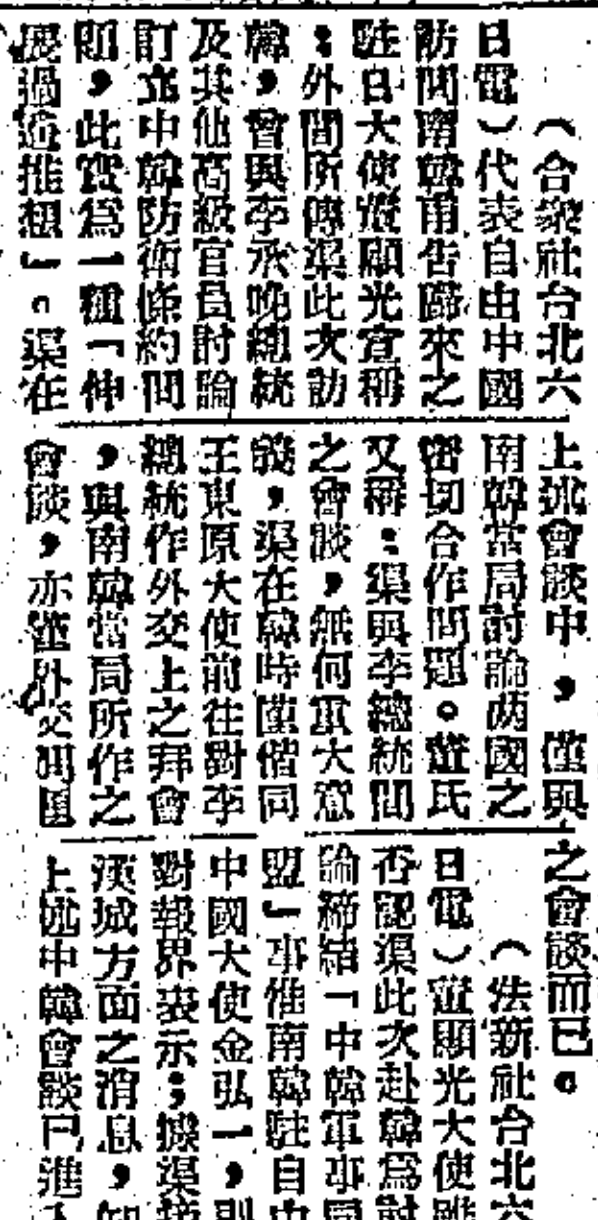 （合衆社台北六
日電）代表自由中國
訪問南韓甫告歸來之
駐日大使董顯光宣稱
：外間所傳渠此次訪
韓，曾與李承晚總統
及其他高級官員討論
訂立中韓防衛條約問
題，此實爲一種「伸
展過遠推想」。渠在
上述會談中，僅與
南韓當局討論兩國之
密切合作問題。董氏
又稱：渠與李總統間
之會談，無何重大意
義，渠在韓時僅偕同
王東原大使前往對李
總統作外交上之拜會
，與南韓當局所作之
會談，亦僅外交
之會談而已。
（法新社台北六
日電）董顯光大使雖
否認渠此次赴韓爲討
論締結「中韓軍事同
盟」事惟南韓駐自由
中國大使金弘一，則
對報界表示；據渠接
漢城方面之消息，知
上述中韓會談已進入